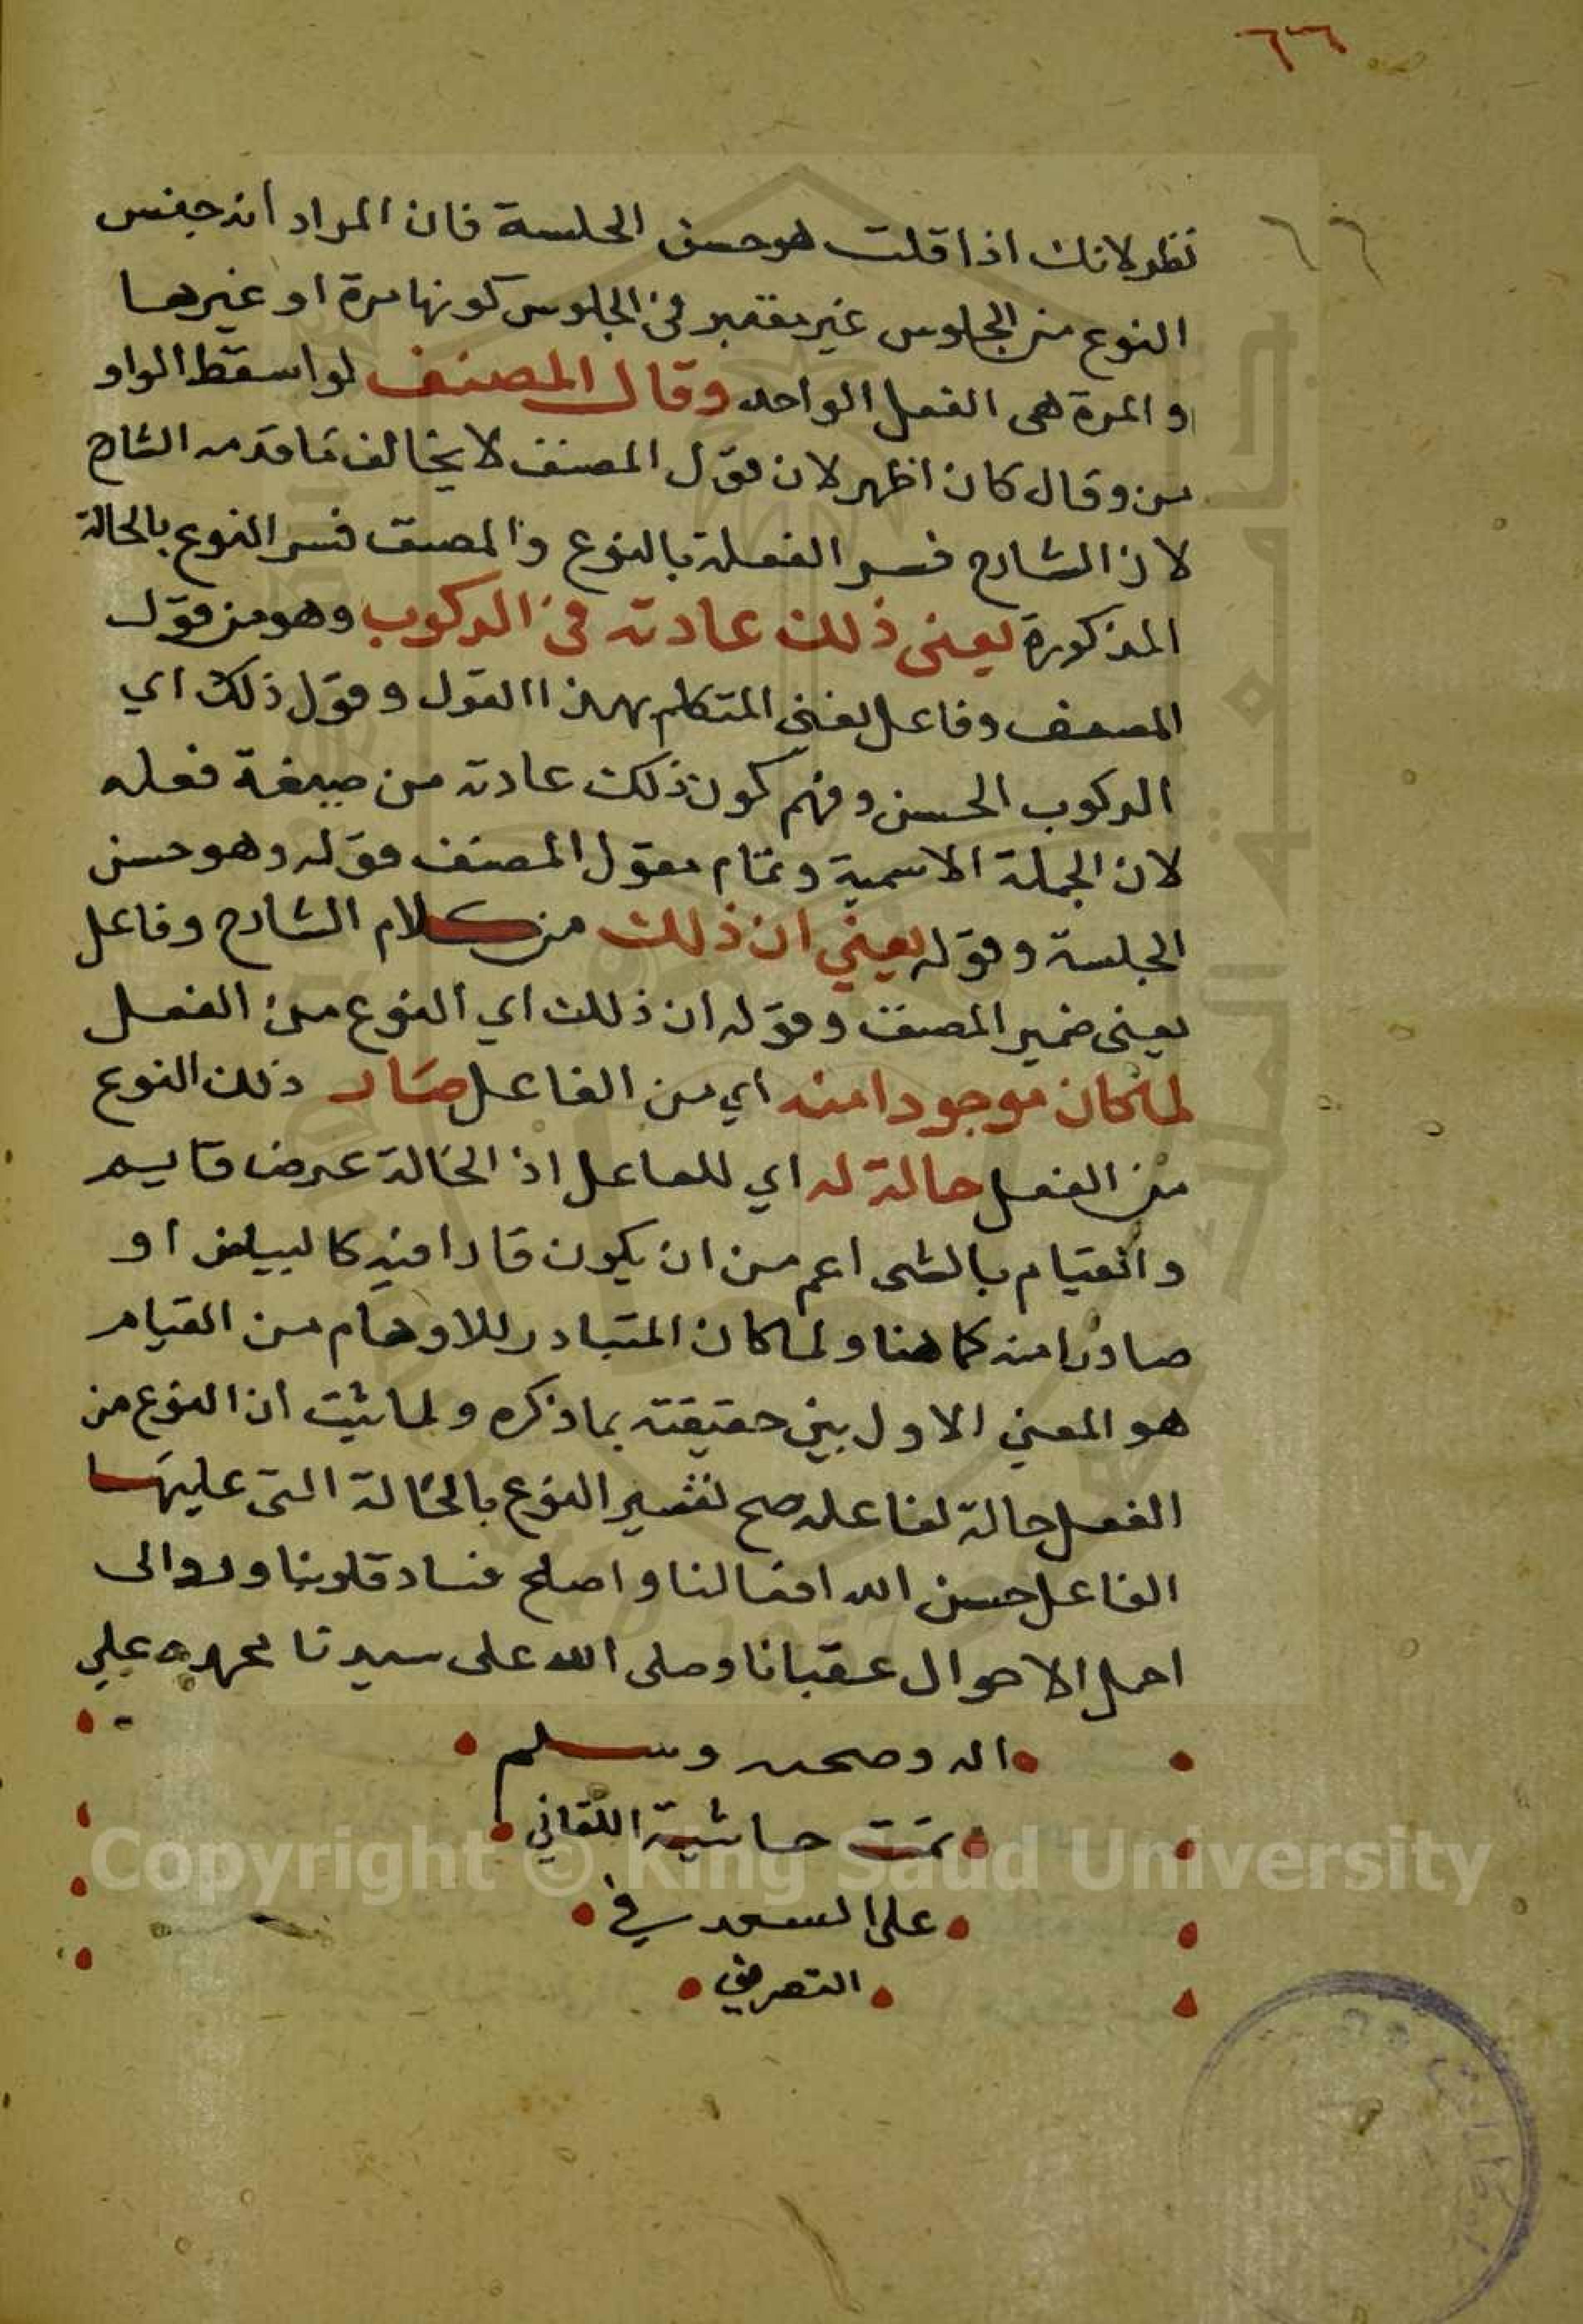 ٦٦
٦٦
نظر لانك اذا قلت هو حسن الجلسة فان المراد انه جنس
النوع من الجلوس غير معتبر في الجلوس كونها مرة او غيرها
والمرة هى الفعل الواحد وقال المصنف لو اسقط الواو
من وقال كان اظهر لان قول المصنف لا يخالف ما قدمه الشارح
لان الشارح فسر الفعلة بالنوع والمصنف فسر النوع بالحالة
المذكورة يعنى ذلك عادته في الركوب وهو من قول
المصنف وفاعل يعنى المتكلم بهذا القول وقول ذلك اي
الركوب الحسن وفهم كون ذلك عادته من صيغة فعله
لان الجملة الاسمية وتمام مقول المصنف قوله وهو حسن
الجلسة وقوله يعني ان ذلك من كلام الشارح وفاعل
يعنى ضمير المصنف وقوله ان ذلك اي النوع من الفعل
لما كان موجودا منه اي من الفاعل صار ذلك النوع
من الفعل حالة له اي للفاعل اذ الحالة عرض قايم
والقيام بالشى اعم من ان يكون قارا فيه كالبياض او
صادرا منه كما هنا ولما كان المتبادر للاوهام من القيام
هو المعني الاول بين حقيقته بما ذكره ولما ثبت ان النوع من
الفعل حالة لفاعله صح تفسير النوع بالحالة التى عليها
الفاعل حسن الله افعالنا واصلح فساد قلوبنا ورد الى
اجمل الاحوال عقبانا وصلى الله على سيدنا محمد وعلى
اله وصحبه وسلم
تمت حاشية اللقاني
على السعد في
التصريف
Copyright © King Saud University